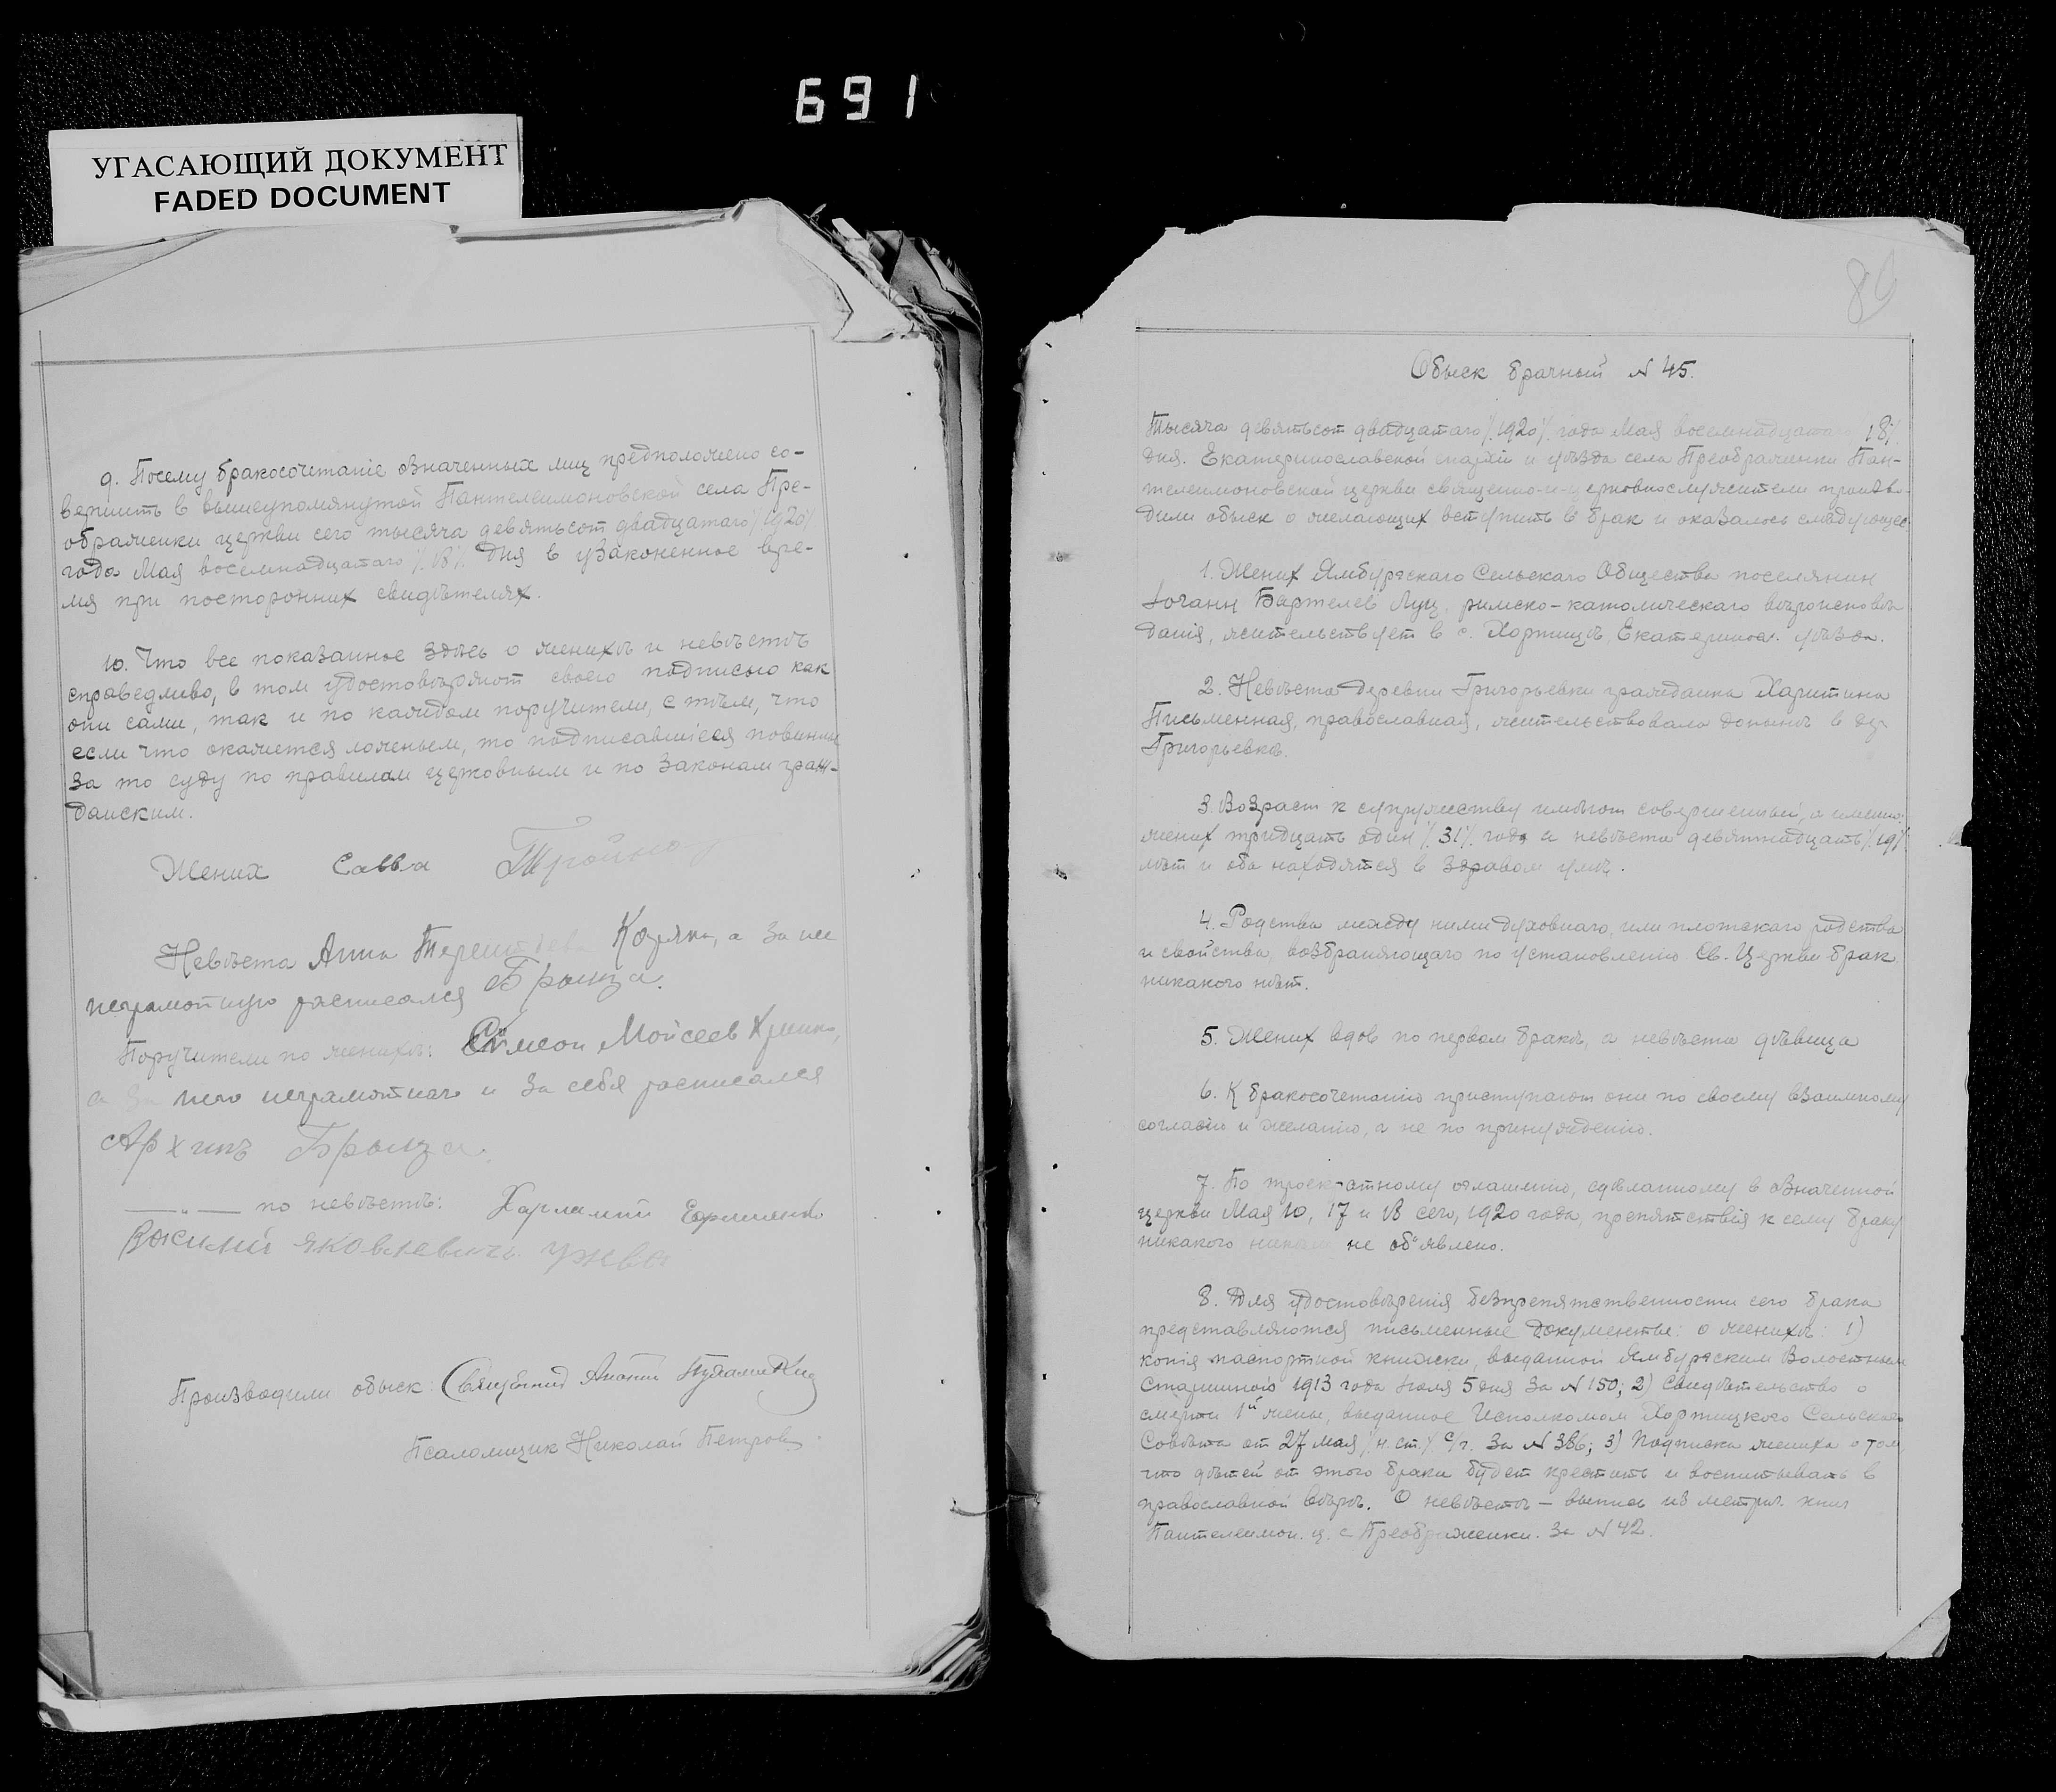 691
УГАСАЮЩИЙ ДОКУМЕНТ
FADED DOCUMENT
9. Посему бракосочетаніе означенных лиц предположено со-
вершить в вышеупомянутой Пантелеимоновской села Пре-
ображенки церкви сего тысяча девятьсот двадцатаго /1920/
года Мая восемнадцатаго /18/ дня в узаконенное вре-
мя при посторонних свидѣтелях.
10. Что все показанное здѣсь о женихѣ и невѣстѣ
справедливо, в том удостовѣряют своею подписью как
они сами, так и по каждом поручители, с тѣм, что
если что окажется ложным, то подписавшіеся повинны
за то суду по правилам церковным и по законам граж-
данским.
Жених Савва
Невѣста Анна Козяка, а за не
неграмотную расписался Брынза.
Поручители по женихѣ: Симеон Мойсеев
а за него неграмотнаго и за себя расписался
Архипъ Брынза.
—„— по невѣстѣ: Харлампи
Василий Яковлевичъ
Производили обыск: Священник
Псаломщик Николай Петров.
Обыск брачный N 45.
Тысяча девятьсот двадцатаго /1920/ года Мая восемнадцата 18/
дня. Екатеринославской епархіи и уѣзда села Преображенки Пан-
телеимоновской церкви священно-и-церковнослужители произво-
дили обыск о желающих вступить в брак и оказалось слѣдующее
1. Жених Ямбургскаго Сельскаго Общества поселянин
Іоганн Бартелев Луц, римско-католическаго вѣроисповѣ
данія, жительствует в с. Хортицѣ, Екатеринос. уѣзда.
2. Невѣста деревни Григорьевки гражданка Харитина
Письменная, православная, жительствовала донынѣ в др
Григорьевкѣ.
3. Возраст к супружеству имѣют совершенный, а именно:
жених тридцать один /31/ года а невѣста девятнадцать /19/
лѣт и оба находятся в здравом умѣ.
4. Родства между ними духовнаго, или плотскаго родства
и свойства, возбраняющаго по установленію Св. Церкви брак
никакого нѣт.
5. Жених вдов по первом бракѣ, а невѣста дѣвица
6. К бракосочетанію приступают они по своему взаимному
согласію и желанію, а не по принужденію.
7. По троекратному оглашенію, сдѣланному в означенной
церкви Мая 10, 17 и 18 сего, 1920 года, препятствія к сему браку
никакого никем не об"явлено.
8. Для удостовѣренія безпрепятственности сего брака
представляются письменные документы: о женихѣ: 1)
копія паспортной книжки, выданной Ямбургским Волостным
Старшиною 1913 года Іюля 5 дня за N 150; 2) Свидѣтельство о
смерти 1й жены, выданное Исполкомом Хортицкого Сельскаго
Совѣта от 27 мая /н. ст./ с/г. за N 386; 3) Подписка жениха о том,
что дѣтей от этого брака будет крестить и воспитывать в
православной вѣрѣ. О невѣстѣ — выпись из метрич. книг
Пантелеимон. ц. с. Преображенки за N 42.